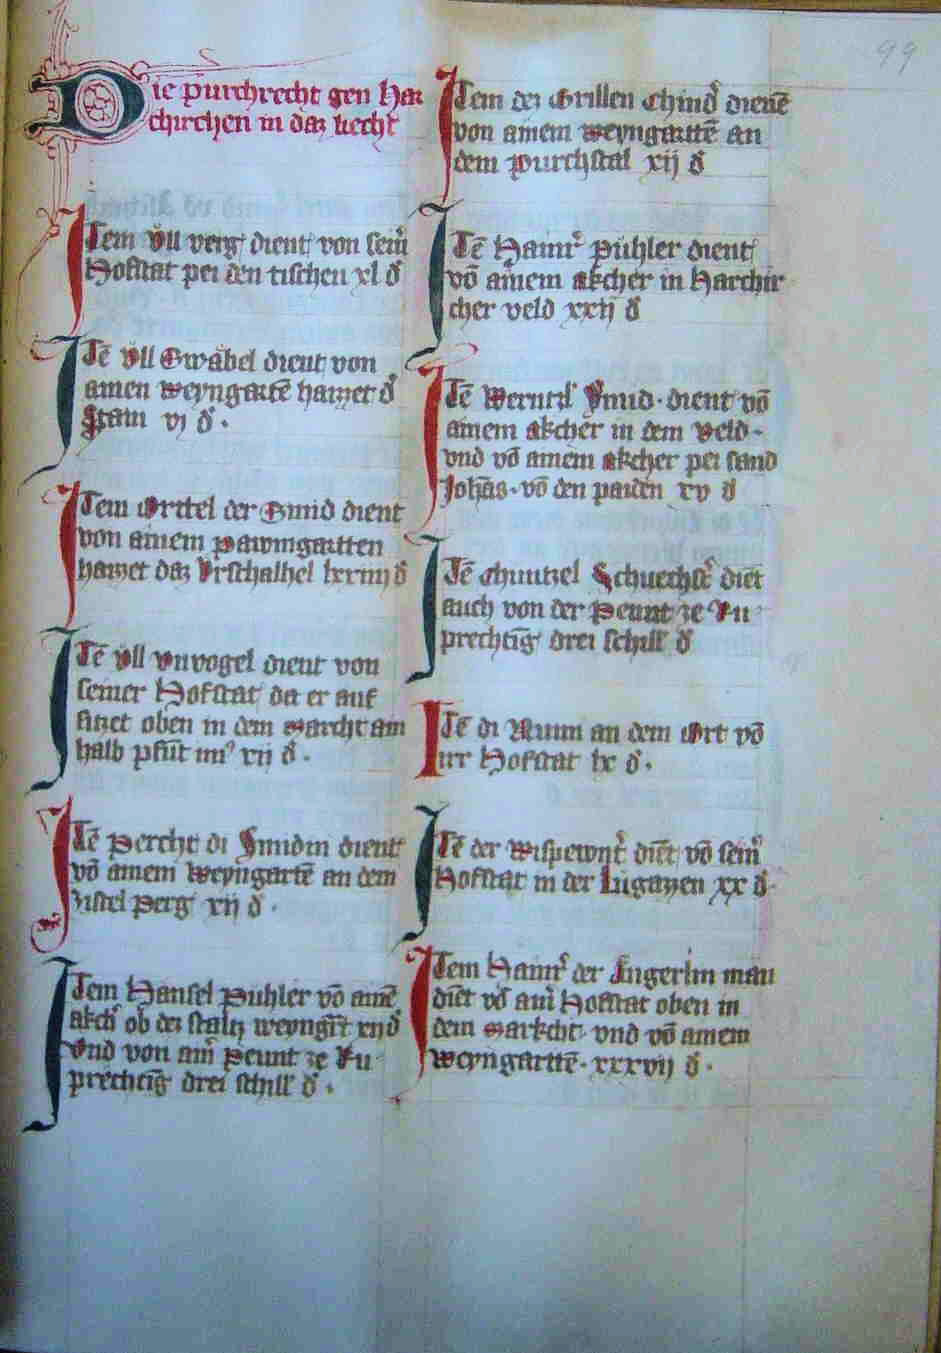 99
Die purchrecht gen Har
chirchen in daz liecht
Item Ull verg dient von seinr
Hofstat pei den tischen xl d
Itē Ull Gwäbel dient von
ainen weyngartē haizzet d
Stain vj d.
Item Orttel der Smid dient
von ainem pawmgartten
haizzet daz Urschalhel lxxiiij d
Itē Ull Unvogel dient von
seiner Hofstat da er auf
sitzet oben in dem Marcht ain
halb pfūt xij d.
Itē Percht di Smidin dient
vō ainem Weyngartē an dem
zistel perg xij d.
Item Hansel Puhler vō ainē
akch ob der staltz weyngrt xij d
Und von ainr Peunt ze Ru
prechtīg drei schill d.
Item der Grillen Chind dienē
von ainem weyngarttē an
dem purchstal xij d
Itē Hainr Pühler dient
vō ainem akcher in Harchir
cher veld xxij d
Itē Werntzl Smid. dient vō
ainem akcher in dem veld.
vnd vō ainem akcher pei sand
Johās. vō den paiden xv d
Itē Chuntzel Schuechst diēt
auch von der Peunt ze Ru
prechtīg drei schill d
Itē di Mum an dem Ort vō
irr Hofstat lx d.
Itē der diēt vō seinr
Hofstat in der Lugayen xx d.
Item Hainr der Angerlin man
diēt vō ainr Hofstat oben in
dem Markcht. vnd vō ainem
Weyngarttē. xxxvij d.